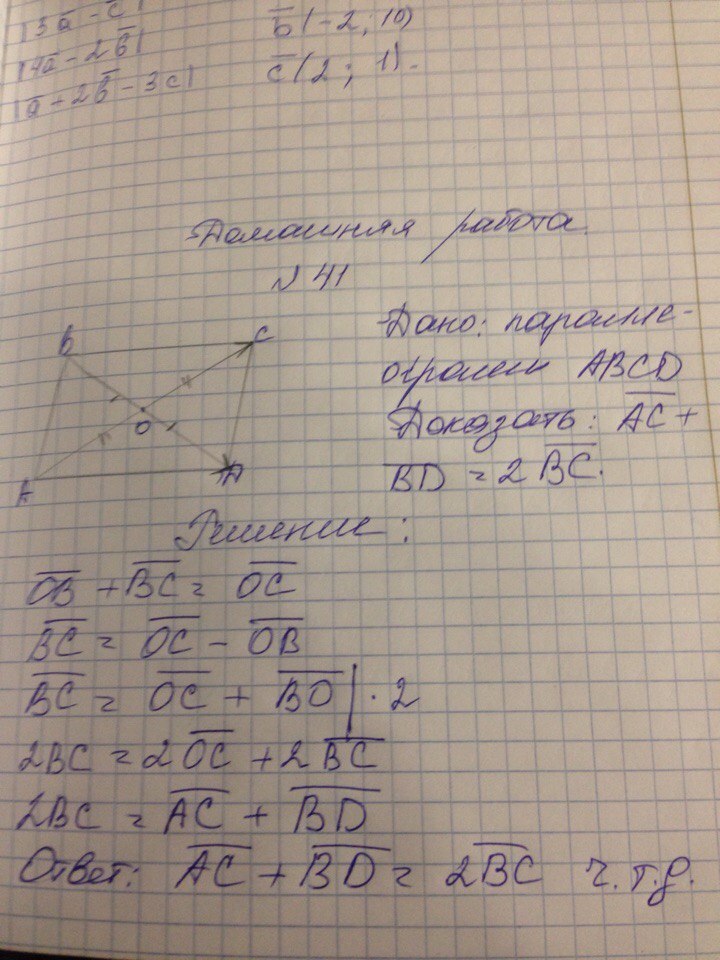 |3a̅ - c̅|
b̅(-2; 10)
|4a̅ - 2b̅|
c̅(2; 1).
|a̅ + 2b̅ - 3c|
Домашняя работа.
№ 41
B
C
O
A
D
Дано: паралле-
лограмм ABCD
Доказать: A̅C̅ +
B̅D̅ = 2B̅C̅.
Решение:
O̅B̅ + B̅C̅ = O̅C̅
B̅C̅ = O̅C̅ - O̅B̅
B̅C̅ = O̅C̅ + B̅O̅ | · 2
2BC = 2O̅C̅ + 2B̅C̅
2BC = A̅C̅ + B̅D̅
Ответ: A̅C̅ + B̅D̅ = 2B̅C̅ ч.т.д.